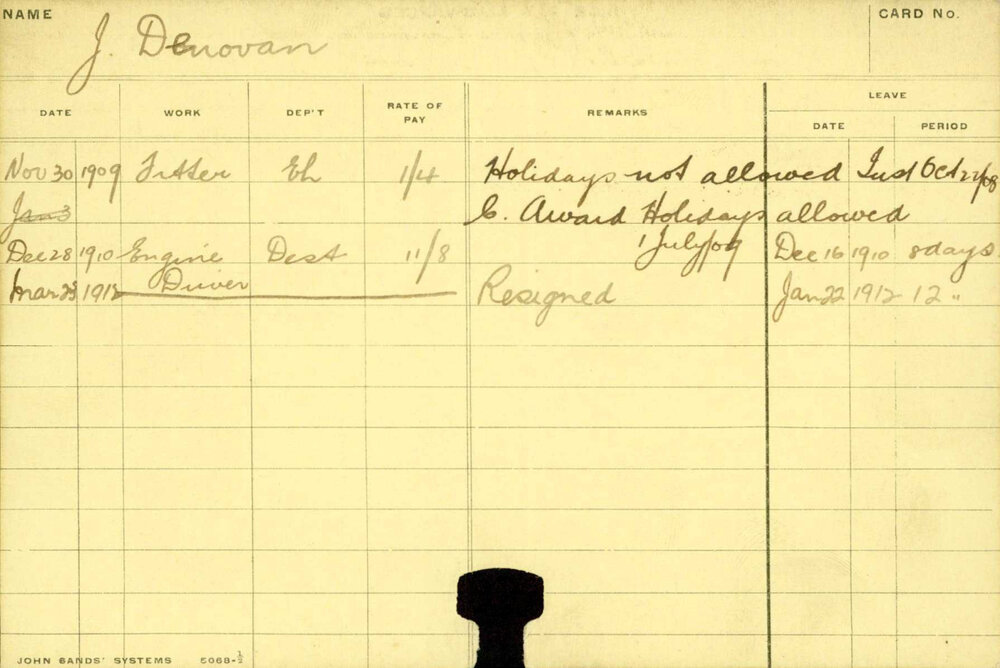 NAME
J. Donovan
CARD No.
DATE WORK DEP'T RATE OF PAY REMARKS LEAVE
DATE PERIOD
Nov 30 1909 Fitter Eh 1/4 Holidays not allowed Ind Oct 22/08
Jan 3 C. Award Holidays allowed
1 July/09
Dec 28 1910 Engine Dest 11/8 Dec 16 1910 8 days
Driver
Mar 23 1912 Resigned Jan 22 1912 12 "
JOHN SANDS' SYSTEMS 5068-½